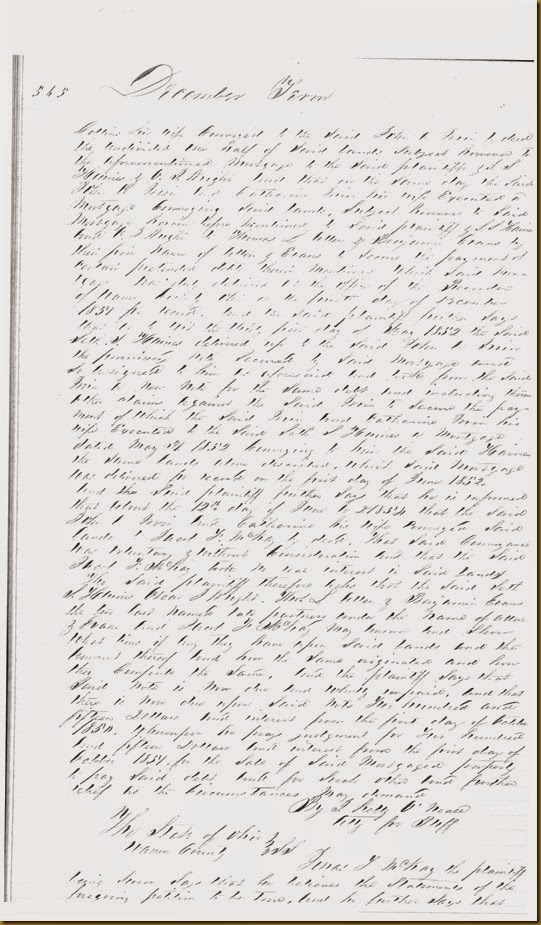 545 December Term
his wife conveyed to the Said John C Irvin by deed
the undivided one half of Said lands Subject however to
the aforementioned Mortgage to the Said plaintiff & S. S.
Haines & N. P. Wright And that on the Same day the Said
John C Irvin and Catharine Irvin his wife Executed a
Mortgage Conveying Said lands, Subject however to Said
Mortgage herein before mentioned to Said plaintiff & S S Haines
and Wright to Thomas L Allen & Benjamin Evans by
their firm Name of Allen & Evans to Secure the payment of
certain pretended debts therein mentioned which Said Mort-
gage was left at the office of the Recorder
of Warren County Ohio on the day of December
1851 for record. And the Said plaintiff further Says
that on the first day of May 1852 the Said
Seth S Haines delivered up to the Said John C Irvin
the promissory note Secured by Said Mortgage and
So assigned to him as aforesaid and took from the Said
Irvin a new Note for the Same debt and including therein
other claims against the Said Irvin to Secure the pay-
ment of which the Said Irvin and Catharine Irvin his
wife Executed to the Said Seth S Haines a Mortgage
dated May 1st 1852 Conveying to him the Said Haines
the Same lands above described, which Said Mortgage
was delivered for record on the first day of June 1852.
And the Said plaintiff further Says that he is informed
that about the 12th day of June AD 1854 that the Said
John C Irvin and Catharine his wife Conveyed Said
lands to F. McKay by deed. That Said Conveyance
was voluntary & without Consideration and that the Said
F. McKay took no interest in Said lands
The Said plaintiff therefore asks that the Said Seth
S Haines J Wright. Thos. L Allen & Benjamin Evans
the two last named late partners under the Name of Allen
& Evans And F. McKay may answer and Show
what liens if any they have upon Said lands and the
amount thereof and how the Same originated and how
they Compute the Same. And the plaintiff Says that
Said Note is Now due and wholly unpaid, and that
there is Now due upon Said Note Two Hundred and
fifteen Dollars with interest from the first day of October
1851. Wherefore he prays judgment for Two Hundred
and fifteen Dollars and interest from the first day of
October 1851. for the Sale of Said Mortgaged property
to pay Said debt and for Such other and further
relief as the Circumstances May demand
By J Kelly O'Neall
Atty for Plff
The State of Ohio
Warren County } SS
Jonas F McKay the plaintiff
being Sworn Says that he believes the Statements of the
foregoing petition to be true, And he further Says that